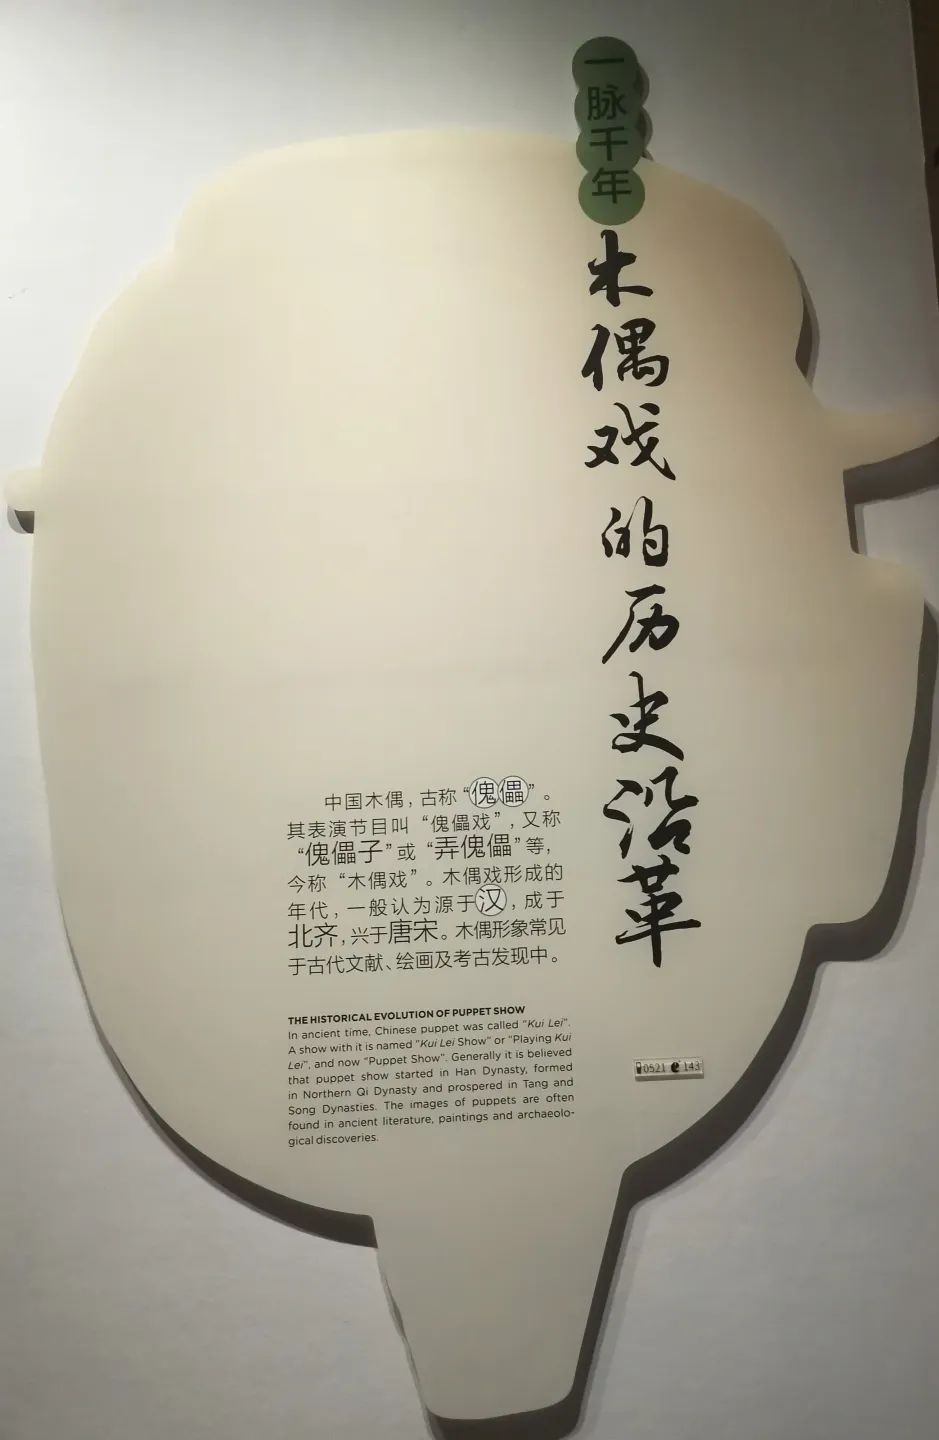 一脉千年
木偶戏的历史沿革
中国木偶，古称“傀儡”。
其表演节目叫“傀儡戏”，又称
“傀儡子”或“弄傀儡”等，
今称“木偶戏”。木偶戏形成的
年代，一般认为源于汉，成于
北齐，兴于唐宋。木偶形象常见
于古代文献、绘画及考古发现中。
THE HISTORICAL EVOLUTION OF PUPPET SHOW
In ancient time, Chinese puppet was called “Kui Lei”.
A show with it is named “Kui Lei Show” or “Playing Kui
Lei”, and now “Puppet Show”. Generally it is believed
that puppet show started in Han Dynasty, formed
in Northern Qi Dynasty and prospered in Tang and
Song Dynasties. The images of puppets are often
found in ancient literature, paintings and archaeolo-
gical discoveries.
0521 143